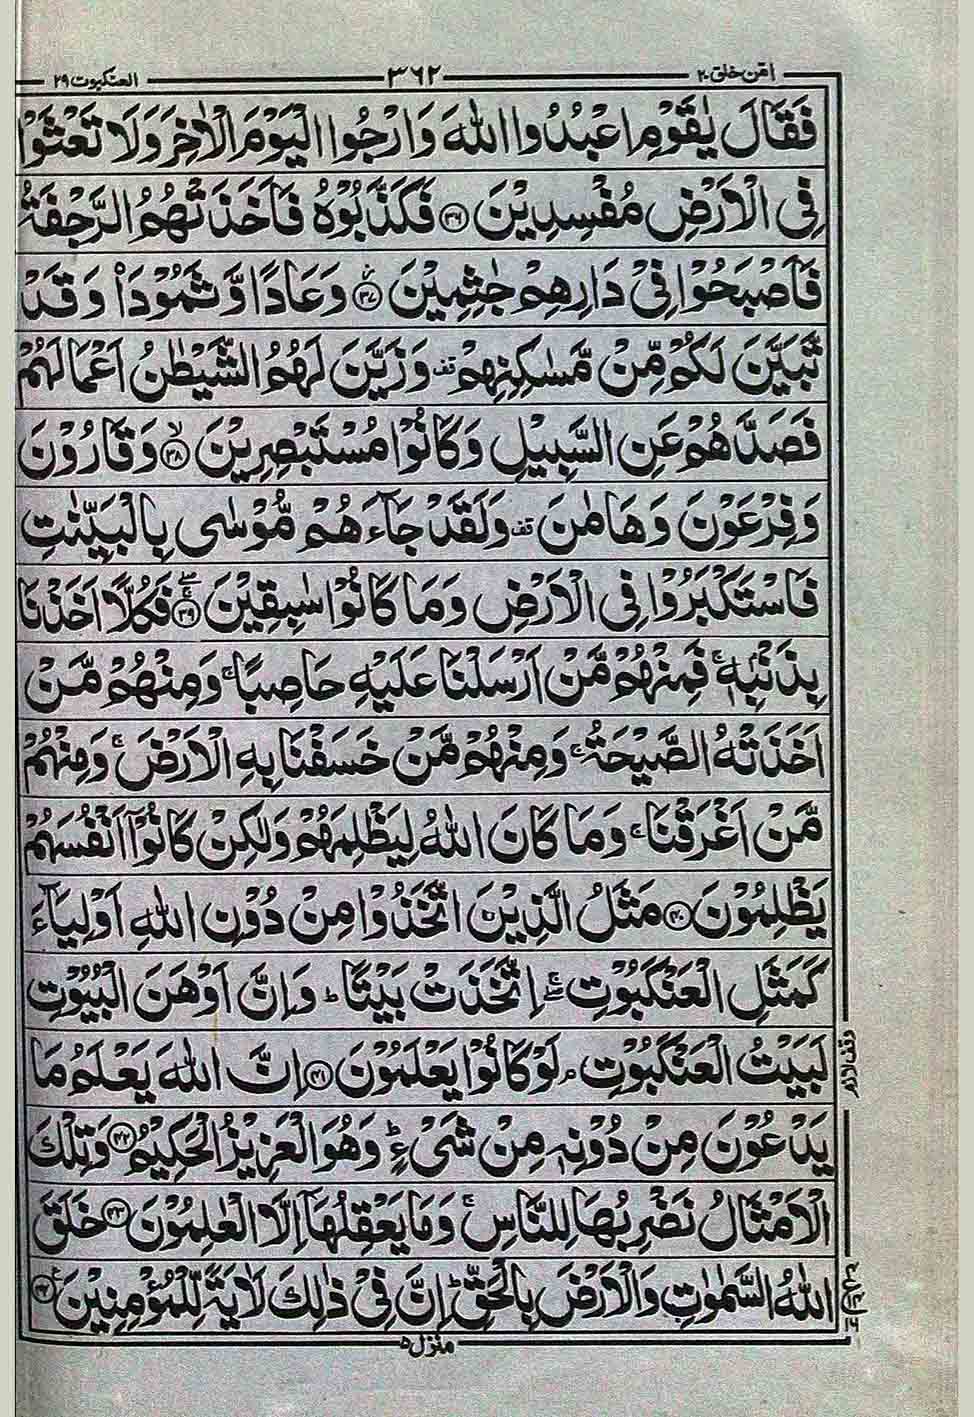 امن خلق ۲۰ ۳۶۲ العنکبوت ۲۹
فَقَالَ یٰقَوْمِ اعْبُدُوا اللّٰهَ وَارْجُوا الْیَوْمَ الْاٰخِرَ وَلَا تَعْثَوْا
فِی الْاَرْضِ مُفْسِدِیْنَ ﴿۳۶﴾ فَكَذَّبُوْهُ فَاَخَذَتْهُمُ الرَّجْفَةُ
فَاَصْبَحُوْا فِیْ دَارِهِمْ جٰثِمِیْنَ ﴿۳۷﴾ؗ وَعَادًا وَّثَمُوْدَا۟ وَقَدْ
تَّبَیَّنَ لَكُمْ مِّنْ مَّسٰكِنِهِمْ قف وَزَیَّنَ لَهُمُ الشَّیْطٰنُ اَعْمَالَهُمْ
فَصَدَّهُمْ عَنِ السَّبِیْلِ وَكَانُوْا مُسْتَبْصِرِیْنَ ﴿۳۸﴾ۙ وَقَارُوْنَ
وَفِرْعَوْنَ وَهَامٰنَ قف وَلَقَدْ جَآءَهُمْ مُّوْسٰی بِالْبَیِّنٰتِ
فَاسْتَكْبَرُوْا فِی الْاَرْضِ وَمَا كَانُوْا سٰبِقِیْنَ ﴿۳۹﴾ۚۖ فَكُلًّا اَخَذْنَا
بِذَنْۢبِهٖ ۚ فَمِنْهُمْ مَّنْ اَرْسَلْنَا عَلَیْهِ حَاصِبًا ۚ وَمِنْهُمْ مَّنْ
اَخَذَتْهُ الصَّیْحَةُ ۚ وَمِنْهُمْ مَّنْ خَسَفْنَا بِهِ الْاَرْضَ ۚ وَمِنْهُمْ
مَّنْ اَغْرَقْنَا ۚ وَمَا كَانَ اللّٰهُ لِیَظْلِمَهُمْ وَلٰكِنْ كَانُوْۤا اَنْفُسَهُمْ
یَظْلِمُوْنَ ﴿۴۰﴾ مَثَلُ الَّذِیْنَ اتَّخَذُوْا مِنْ دُوْنِ اللّٰهِ اَوْلِیَآءَ
كَمَثَلِ الْعَنْكَبُوْتِ ۖۚ اِتَّخَذَتْ بَیْتًا ؕ وَاِنَّ اَوْهَنَ الْبُیُوْتِ
لَبَیْتُ الْعَنْكَبُوْتِ ۘ لَوْ كَانُوْا یَعْلَمُوْنَ ﴿۴۱﴾ اِنَّ اللّٰهَ یَعْلَمُ مَا
وقف لازم
یَدْعُوْنَ مِنْ دُوْنِهٖ مِنْ شَیْءٍ ؕ وَهُوَ الْعَزِیْزُ الْحَكِیْمُ ﴿۴۲﴾ وَتِلْكَ
الْاَمْثَالُ نَضْرِبُهَا لِلنَّاسِ ۚ وَمَا یَعْقِلُهَاۤ اِلَّا الْعٰلِمُوْنَ ﴿۴۳﴾ خَلَقَ
اللّٰهُ السَّمٰوٰتِ وَالْاَرْضَ بِالْحَقِّ ؕ اِنَّ فِیْ ذٰلِكَ لَاٰیَةً لِّلْمُؤْمِنِیْنَ ﴿۴۴﴾
ع ۱۶
منزل ۵